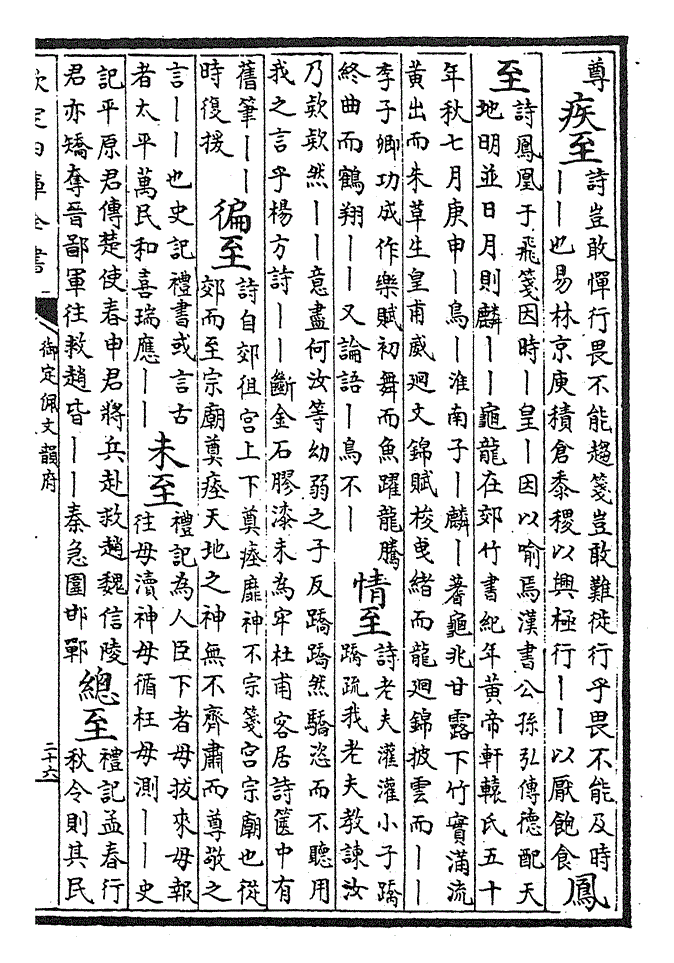 尊
疾至
詩豈敢憚行畏不能趨箋豈敢難徒行乎畏不能及時
——也易林京庾積倉黍稷以興極行——以厭飽食
鳳
至
詩鳳凰于飛箋因時—皇—因以喻焉漢書公孫弘傳德配天
地明並日月則麟——龜龍在郊竹書紀年黄帝軒轅氏五十
年秋七月庚申—鳥—淮南子—麟—蓍龜兆甘露下竹實滿流
黄出而朱草生皇甫威廻文錦賦梭曳緒而龍廻錦披雲而——
李子卿功成作樂賦初舞而魚躍龍騰
終曲而鶴翔——又論語—鳥不—
情至
詩老夫灌灌小子蹻
蹻疏我老夫教諫汝
乃欵欵然——意盡何汝等幼弱之子反蹻蹻然驕恣而不聽用
我之言乎楊方詩——斷金石膠漆未為牢杜甫客居詩篋中有
舊筆——
時復援
徧至
詩自郊徂宫上下奠瘞靡神不宗箋宫宗廟也從
郊而至宗廟奠瘞天地之神無不齊肅而尊敬之
言——也史記禮書或言古
者太平萬民和喜瑞應——
未至
禮記為人臣下者毋拔來毋報
往毋瀆神毋循枉毋測——史
記平原君傳楚使春申君將兵赴救趙魏信陵
君亦矯奪晉鄙軍往救趙皆——秦急圍邯鄲
總至
禮記孟春行
秋令則其民
欽定四庫全書
御定佩文韻府
二十六